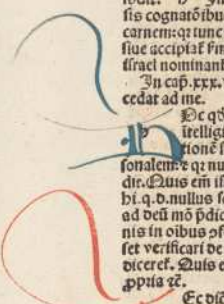 sis cognatōibus
carnem: qr tunc
siue accipiat̄ ſm
iſrael nominant
In cap. xxx.
cedat ad me.
Hec qō
ītellig
tionē s
sonalem: ꝛ qr nu
dir. Quis em̄ i
hi. q. d. nullus s
ad deū mō p̄dic
nis in oībus ꝯf
set verificari de
diceret. Quis e
ꝓpria ꝛc̄.